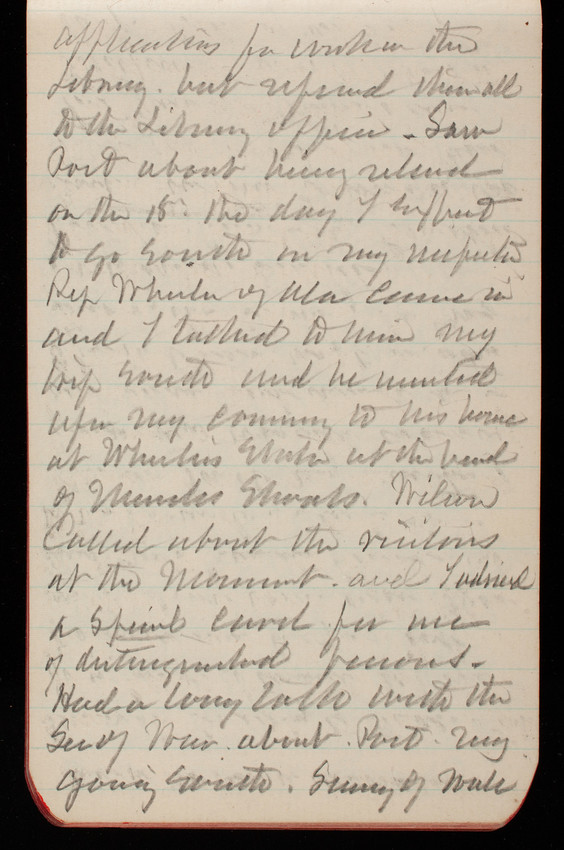 applications for work in the
Library. but referred them all
to the Library office. Saw
Post about being relieved
on the 15. the day I expect
to go South on my inspection
Rep Wheeler of Ala came in
and I talked to him my
trip South and he insisted
upon my coming to his home
at Wheelers Station at the head
of Muscles Shoals. Wilson
Called about the visitors
at the Monument. and I advised
a special card for use
of distinguished persons.
Had a long talk with the
Sec of War. about. Post. my
going South. Survey of